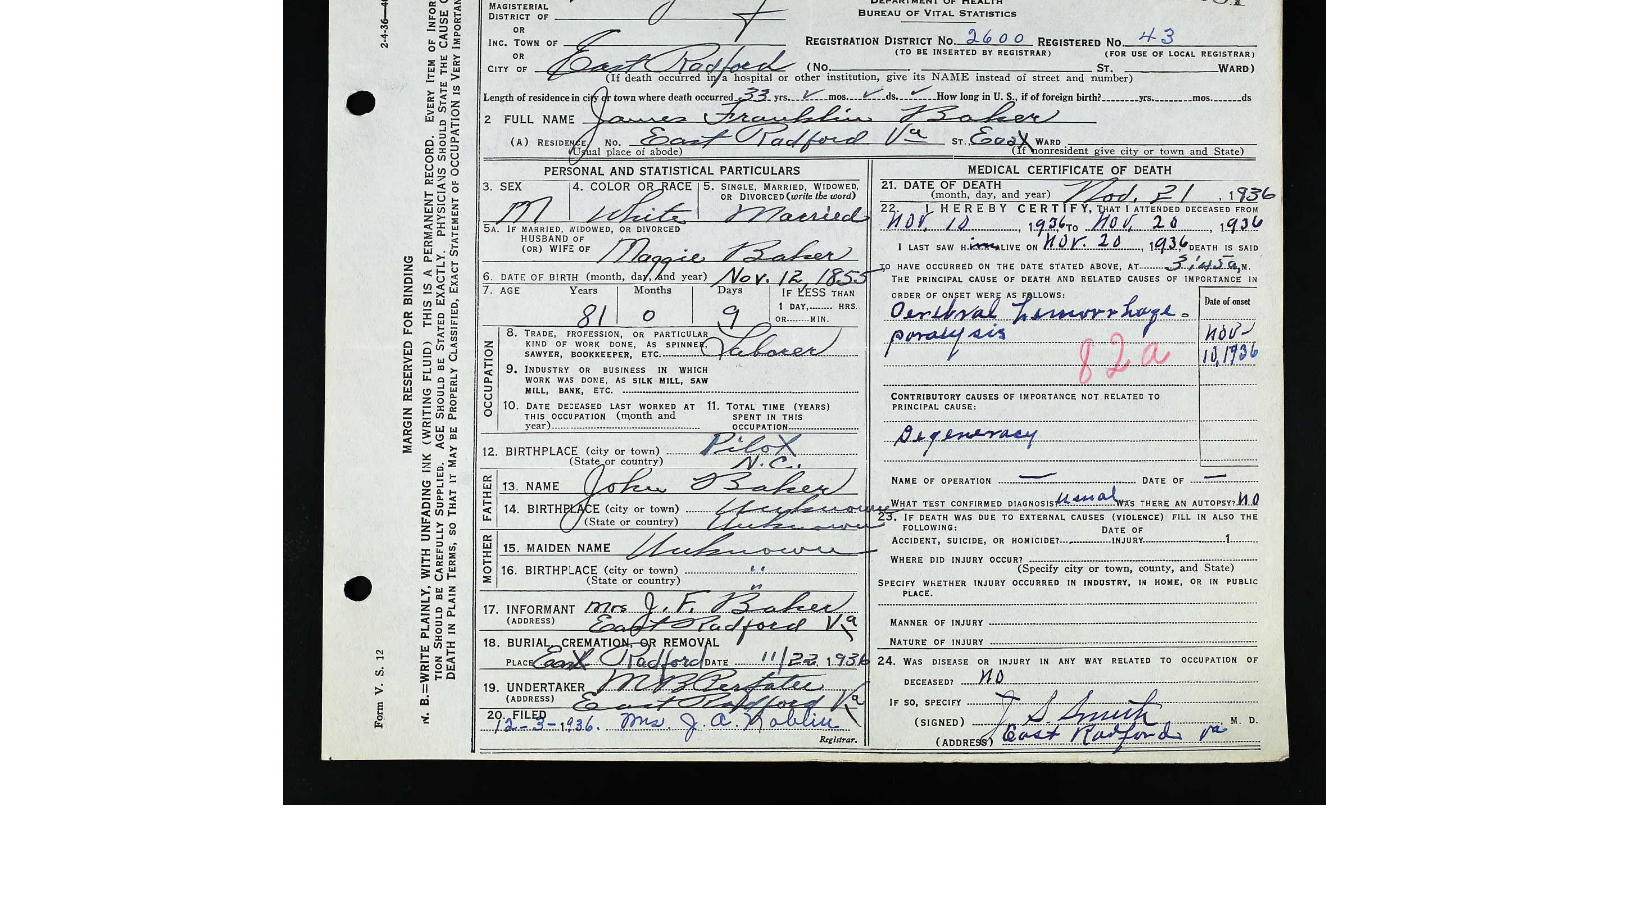 MAGISTERIAL
DISTRICT OF
DEPARTMENT OF HEALTH
BUREAU OF VITAL STATISTICS
OR
INC. TOWN OF
OR
CITY OF East Radford
REGISTRATION DISTRICT No. 2600 REGISTERED No. 43
(TO BE INSERTED BY REGISTRAR) (FOR USE OF LOCAL REGISTRAR)
(No. ST. WARD)
(If death occurred in a hospital or other institution, give its NAME instead of street and number)
Length of residence in city or town where death occurred 33 yrs. ✓ mos. ✓ ds. ✓ How long in U. S., if of foreign birth? yrs. mos. ds
2 FULL NAME James Franklin Baker
(A) RESIDENCE No. East Radford Va ST. East WARD
(Usual place of abode) (If nonresident give city or town and State)
PERSONAL AND STATISTICAL PARTICULARS
3. SEX 4. COLOR OR RACE 5. SINGLE, MARRIED, WIDOWED,
OR DIVORCED (write the word)
M White Married
5A. IF MARRIED, WIDOWED, OR DIVORCED
HUSBAND OF
(OR) WIFE OF Maggie Baker
6. DATE OF BIRTH (month, day, and year) Nov. 12, 1855
7. AGE Years Months Days IF LESS THAN
1 DAY, HRS.
OR MIN.
81 0 9
OCCUPATION
8. TRADE, PROFESSION, OR PARTICULAR
KIND OF WORK DONE, AS SPINNER,
SAWYER, BOOKKEEPER, ETC. Laborer
9. INDUSTRY OR BUSINESS IN WHICH
WORK WAS DONE, AS SILK MILL, SAW
MILL, BANK, ETC.
10. DATE DECEASED LAST WORKED AT
THIS OCCUPATION (month and
year)
11. TOTAL TIME (YEARS)
SPENT IN THIS
OCCUPATION
12. BIRTHPLACE (city or town) Pilot
(State or country) N.C.
FATHER
13. NAME John Baker
14. BIRTHPLACE (city or town) Unknown
(State or country) Unknown
MOTHER
15. MAIDEN NAME Unknown
16. BIRTHPLACE (city or town) "
(State or country) "
17. INFORMANT Mrs J. F. Baker
(ADDRESS) East Radford Va
18. BURIAL, CREMATION, OR REMOVAL
PLACE East Radford DATE 11/22 1936
19. UNDERTAKER
(ADDRESS) East Radford Va
20. FILED
12-3-1936. Mrs. J. A.
Registrar.
MEDICAL CERTIFICATE OF DEATH
21. DATE OF DEATH
(month, day, and year) Nov. 21, 1936
22. I HEREBY CERTIFY, THAT I ATTENDED DECEASED FROM
Nov. 10, 1936 TO Nov. 20, 1936
I LAST SAW H im ALIVE ON Nov. 20, 1936 DEATH IS SAID
TO HAVE OCCURRED ON THE DATE STATED ABOVE, AT 3:45 a, M.
THE PRINCIPAL CAUSE OF DEATH AND RELATED CAUSES OF IMPORTANCE IN
ORDER OF ONSET WERE AS FOLLOWS: Date of onset
Cerebral hemorrhage -
paralysis Nov-
10, 1936
82a
CONTRIBUTORY CAUSES OF IMPORTANCE NOT RELATED TO
PRINCIPAL CAUSE:
Degeneracy
NAME OF OPERATION — DATE OF —
WHAT TEST CONFIRMED DIAGNOSIS usual WAS THERE AN AUTOPSY? NO
23. IF DEATH WAS DUE TO EXTERNAL CAUSES (VIOLENCE) FILL IN ALSO THE
FOLLOWING: DATE OF
ACCIDENT, SUICIDE, OR HOMICIDE? INJURY 1
WHERE DID INJURY OCCUR?
(Specify city or town, county, and State)
SPECIFY WHETHER INJURY OCCURRED IN INDUSTRY, IN HOME, OR IN PUBLIC
PLACE.
MANNER OF INJURY
NATURE OF INJURY
24. WAS DISEASE OR INJURY IN ANY WAY RELATED TO OCCUPATION OF
DECEASED? NO
IF SO, SPECIFY
(SIGNED) J S Smith M. D.
(ADDRESS) East Radford Va
MARGIN RESERVED FOR BINDING
N. B.—WRITE PLAINLY, WITH UNFADING INK (WRITING FLUID) THIS IS A PERMANENT RECORD. EVERY ITEM OF INFOR
TION SHOULD BE CAREFULLY SUPPLIED. AGE SHOULD BE STATED EXACTLY. PHYSICIANS SHOULD STATE THE CAUSE O
DEATH IN PLAIN TERMS, SO THAT IT MAY BE PROPERLY CLASSIFIED, EXACT STATEMENT OF OCCUPATION IS VERY IMPORTAN
Form V. S. 12
2-4-36